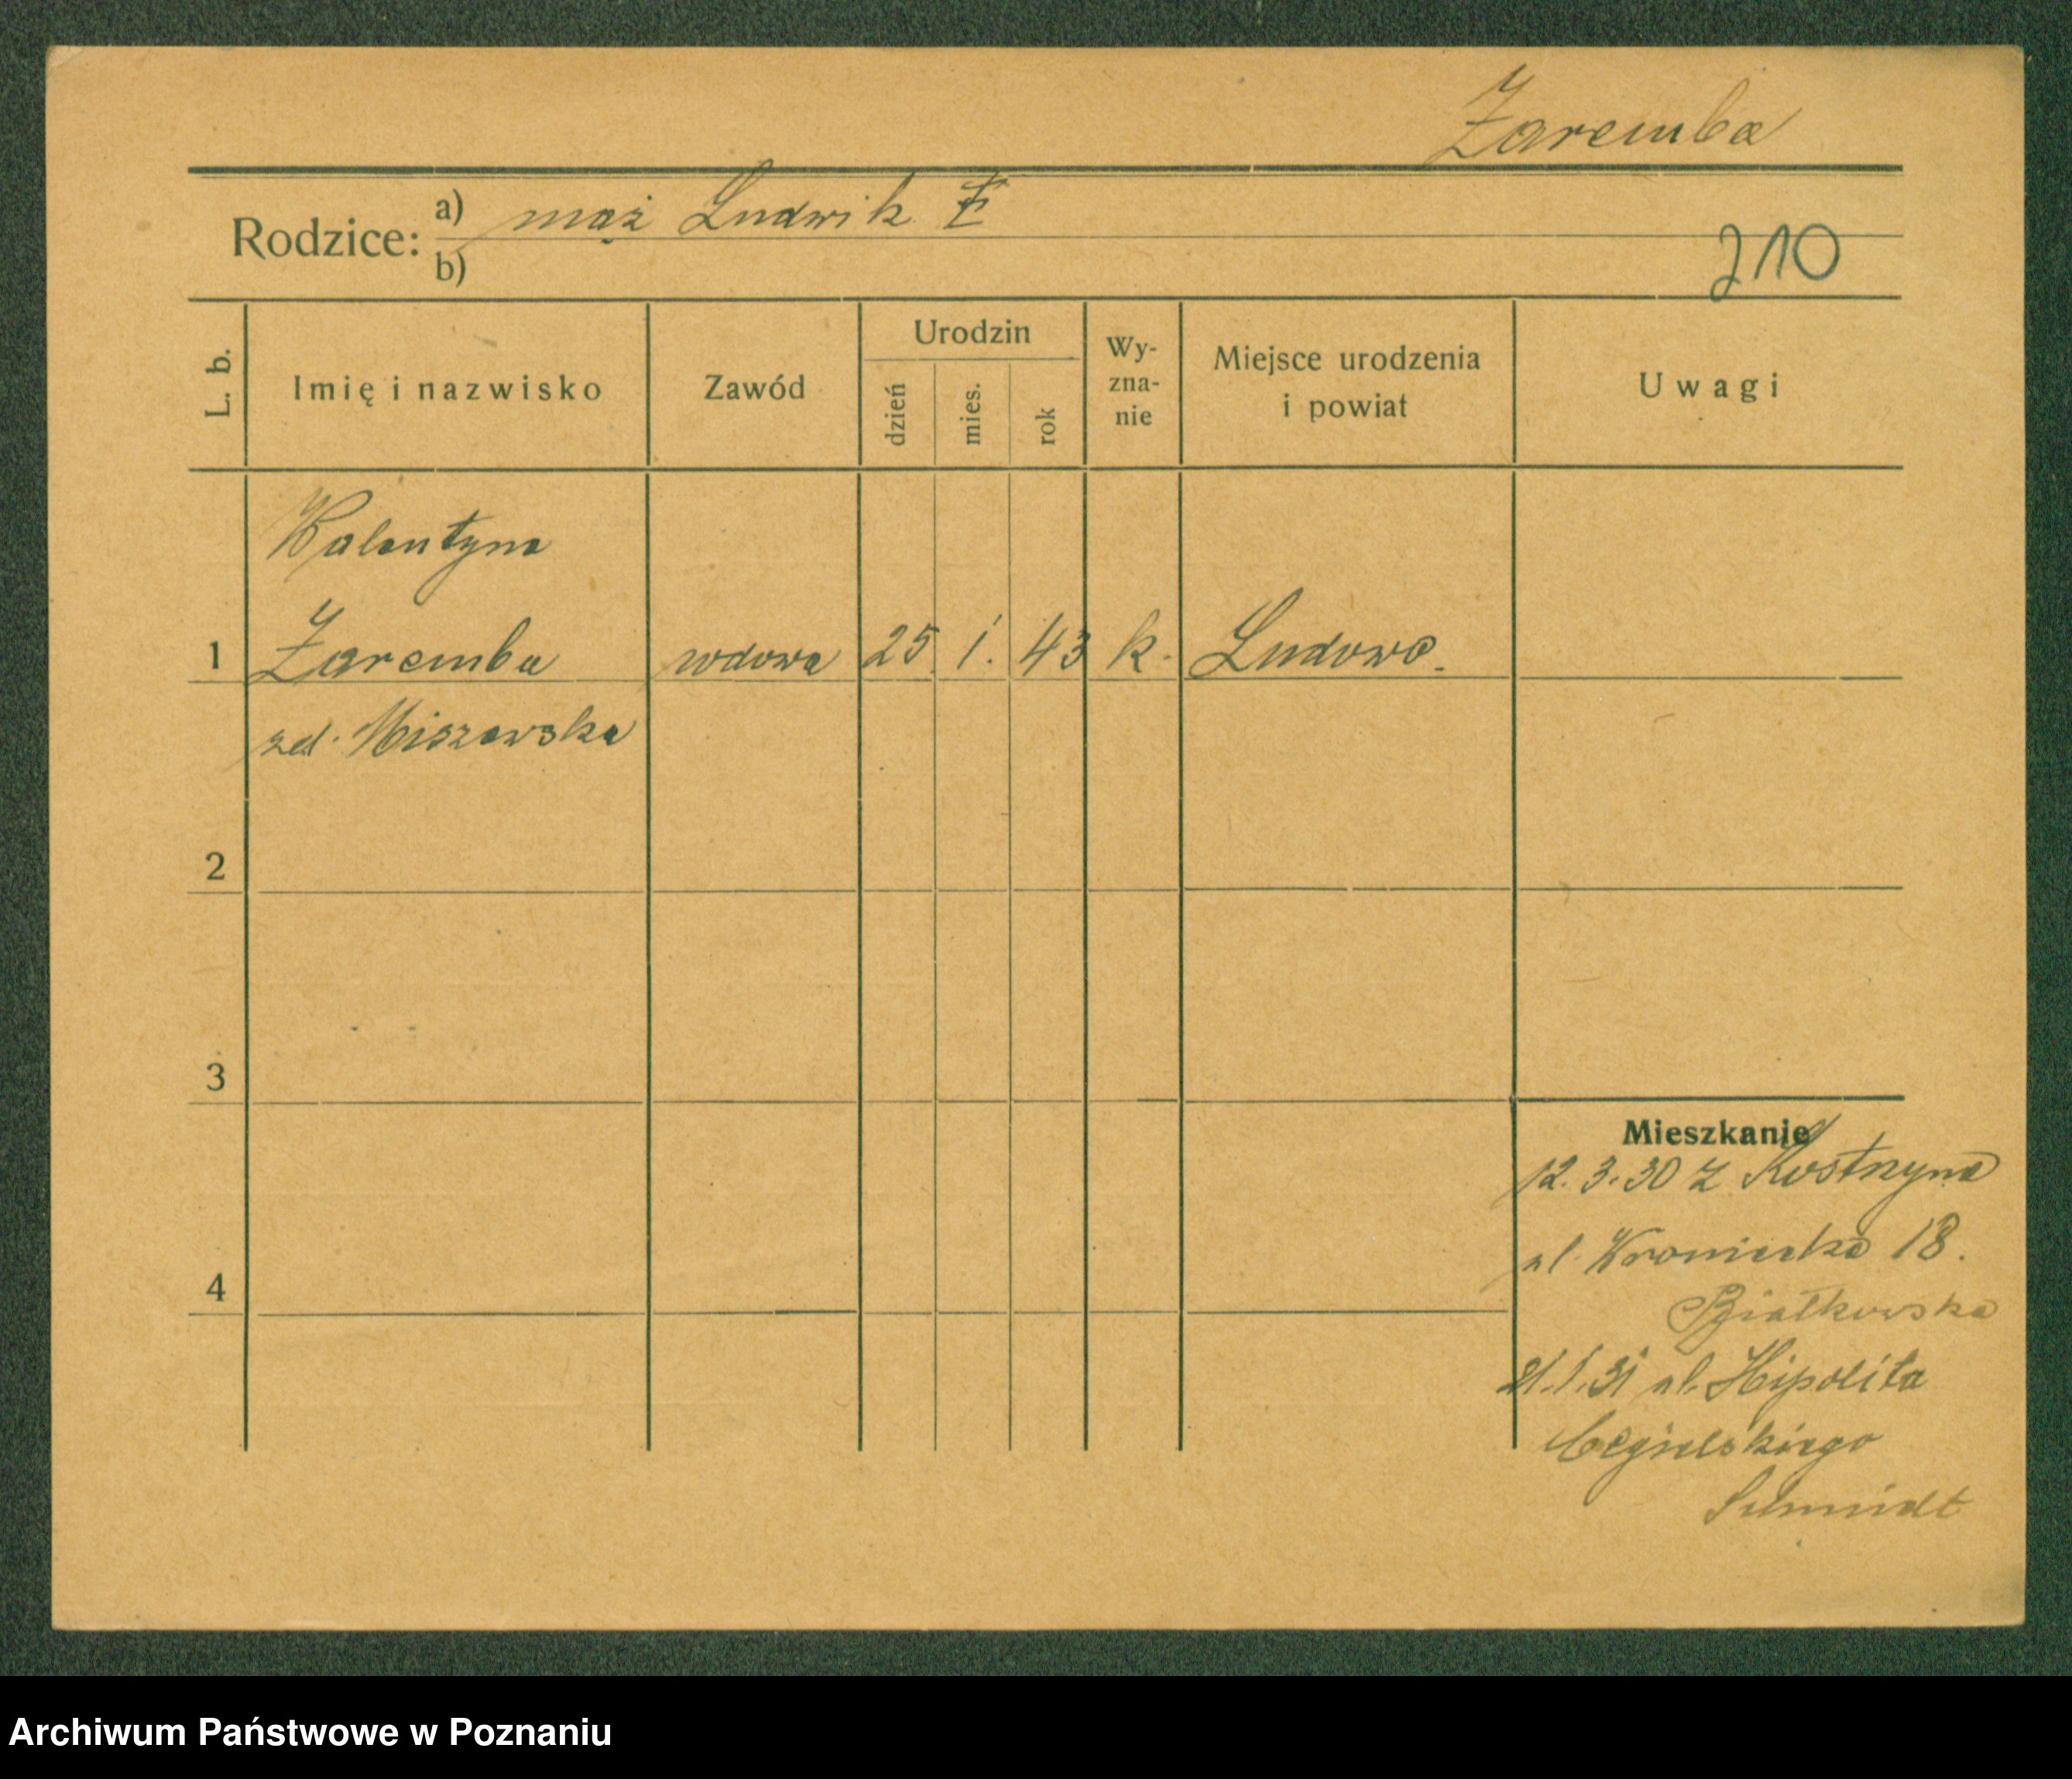 Zaremba
Rodzice: a) mąż Ludwik
b)
210
L. b. Imię i nazwisko Zawód Urodzin dzień mies. rok Wy-zna-nie Miejsce urodzenia i powiat Uwagi
Walentyna
1 Zaremba wdowa 25. 1. 43 k. Ludowo.
zd. Miszewska
2
3
4
Mieszkanie
12.3.30 z Kostrzyna
ul. Wroniecka 18.
Białkowska
21.1.31 ul. Hipolita
Cegielskiego
Schmidt
Archiwum Państwowe w Poznaniu